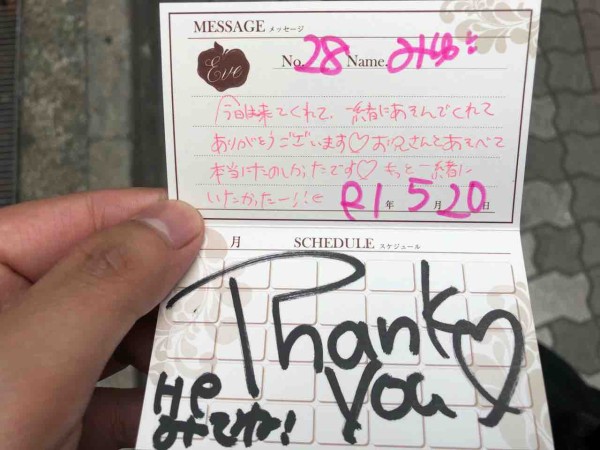 MESSAGE メッセージ
Eve
No. 28 Name.
今日は来てくれて、一緒にあそんでくれて
ありがとうございます♡お兄さんとあそべて
本当にたのしかったです♡もっと一緒に
いたかったー!!
R1年5月20日
月 SCHEDULE スケジュール
Thank
You♡
HP
みてね!